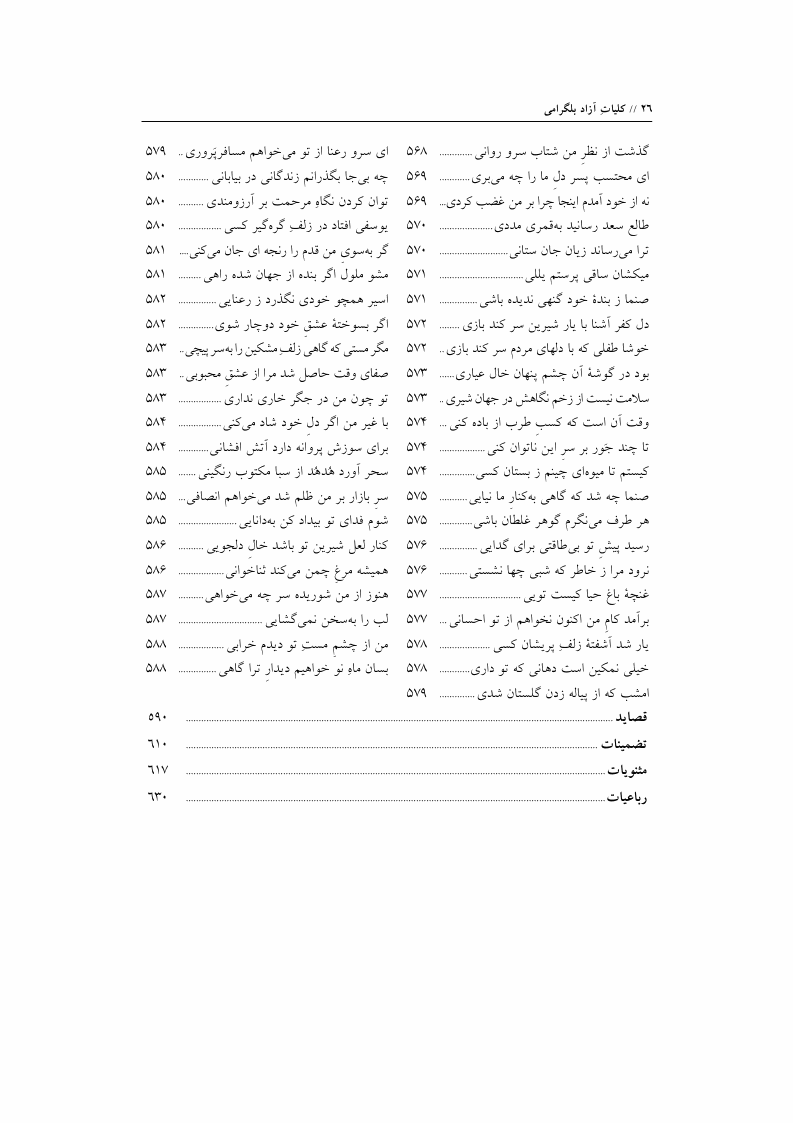 ۲۶ // کلیاتِ آزاد بلگرامی
گذشت از نظرِ من شتاب سرو روانی ............. ۵۶۸
ای محتسب پسر دلِ ما را چه می‌بری ............ ۵۶۹
نه از خود آمدم اینجا چرا بر من غضب کردی... ۵۶۹
طالع سعد رسانید به‌قمری مددی ..................... ۵۷۰
ترا می‌رساند زیان جان ستانی ........................... ۵۷۰
میکشان ساقی پرستم یللی ................................. ۵۷۱
صنما ز بندۀ خود گنهی ندیده باشی ............... ۵۷۱
دل کفر آشنا با یار شیرین سر کند بازی ........ ۵۷۲
خوشا طفلی که با دلهای مردم سر کند بازی .. ۵۷۲
بود در گوشۀ آن چشم پنهان خال عیاری...... ۵۷۳
سلامت نیست از زخم نگاهش در جهان شیری .. ۵۷۳
وقت آن است که کسبِ طرب از باده کنی ... ۵۷۴
تا چند جَور بر سرِ این ناتوان کنی .................. ۵۷۴
کیستم تا میوه‌ای چینم ز بستان کسی .............. ۵۷۴
صنما چه شد که گاهی به‌کنارِ ما نیایی ........... ۵۷۵
هر طرف می‌نگرم گوهر غلطان باشی ............. ۵۷۵
رسید پیشِ تو بی‌طاقتی برای گدایی ............... ۵۷۶
نرود مرا ز خاطر که شبی چها نشستی ........... ۵۷۶
غنچۀ باغ حیا کیست تویی ................................ ۵۷۷
برآمد کامِ من اکنون نخواهم از تو احسانی ... ۵۷۷
یار شد آشفتۀ زلفِ پریشان کسی .................... ۵۷۸
خیلی نمکین است دهانی که تو داری ............ ۵۷۸
امشب که از پیاله زدن گلستان شدی .............. ۵۷۹
ای سرو رعنا از تو می‌خواهم مسافرپَروری .. ۵۷۹
چه بی‌جا بگذرانم زندگانی در بیابانی ............ ۵۸۰
توان کردن نگاهِ مرحمت بر آرزومندی .......... ۵۸۰
یوسفی افتاد در زلفِ گره‌گیر کسی ................. ۵۸۰
گر به‌سویِ من قدم را رنجه ای جان می‌کنی .... ۵۸۱
مشو ملول اگر بنده از جهان شده راهی ......... ۵۸۱
اسیر همچو خودی نگذرد ز رعنایی ............... ۵۸۲
اگر بسوختۀ عشقِ خود دوچار شوی .............. ۵۸۲
مگر مستی که گاهی زلفِ مشکین را به‌سر پیچی .. ۵۸۳
صفای وقت حاصل شد مرا از عشقِ محبوبی .. ۵۸۳
تو چون من در جگر خاری نداری ................. ۵۸۳
با غیر من اگر دلِ خود شاد می‌کنی ................. ۵۸۴
برای سوزش پروانه دارد آتش افشانی ............ ۵۸۴
سحر آورد هُدهُد از سبا مکتوب رنگینی ....... ۵۸۵
سرِ بازار بر من ظلم شد می‌خواهم انصافی ... ۵۸۵
شوم فدای تو بیداد کن به‌دانایی ....................... ۵۸۵
کنار لعل شیرین تو باشد خالِ دلجویی .......... ۵۸۶
همیشه مرغِ چمن می‌کند ثناخوانی .................. ۵۸۶
هنوز از من شوریده سر چه می‌خواهی .......... ۵۸۷
لب را به‌سخن نمی‌گشایی ................................. ۵۸۷
من از چشمِ مستِ تو دیدم خرابی .................. ۵۸۸
بسان ماهِ نو خواهیم دیدارِ ترا گاهی ............... ۵۸۸
قصاید ................................................................ ۵۹۰
تضمینات ................................................................ ۶۱۰
مثنویات ................................................................ ۶۱۷
رباعیات ................................................................ ۶۳۰